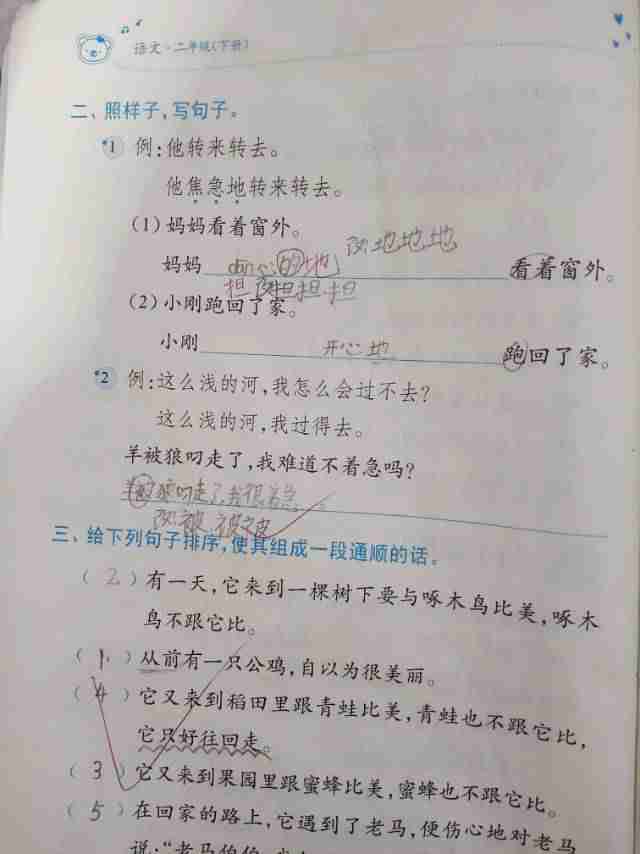 语文·二年级(下册)
二、照样子,写句子。
*1 例:他转来转去。
他焦急地转来转去。
(1)妈妈看着窗外。
改地地地
妈妈 dān心的地 看着窗外。
担 改担担担
(2)小刚跑回了家。
小刚 开心地 跑回了家。
*2 例:这么浅的河,我怎么会过不去?
这么浅的河,我过得去。
羊被狼叼走了,我难道不着急吗?
羊被狼叼走了,我很着急。
改被 被
三、给下列句子排序,使其组成一段通顺的话。
(2)有一天,它来到一棵树下要与啄木鸟比美,啄木
鸟不跟它比。
(1)从前有一只公鸡,自以为很美丽。
(4)它又来到稻田里跟青蛙比美,青蛙也不跟它比,
它只好往回走。
(3)它又来到果园里跟蜜蜂比美,蜜蜂也不跟它比。
(5)在回家的路上,它遇到了老马,便伤心地对老马
说:“老马伯伯